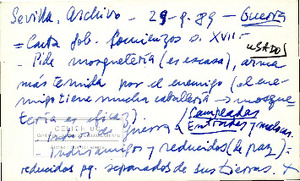 Sevilla, Archivo - 29-9-89 - Guerra
= Carta Gob. Comienzos s. XVII:
- Pide mosquetería (es escasa), arma
más temida por el enemigo (el ene-
migo tiene mucha caballería → mosque
tería es eficaz). USADOS
guerra / Empleados
Entradas y malocas.
- Indios amigos y reducidos (de paz) =
reducidos pq. separados de sus tierras. X